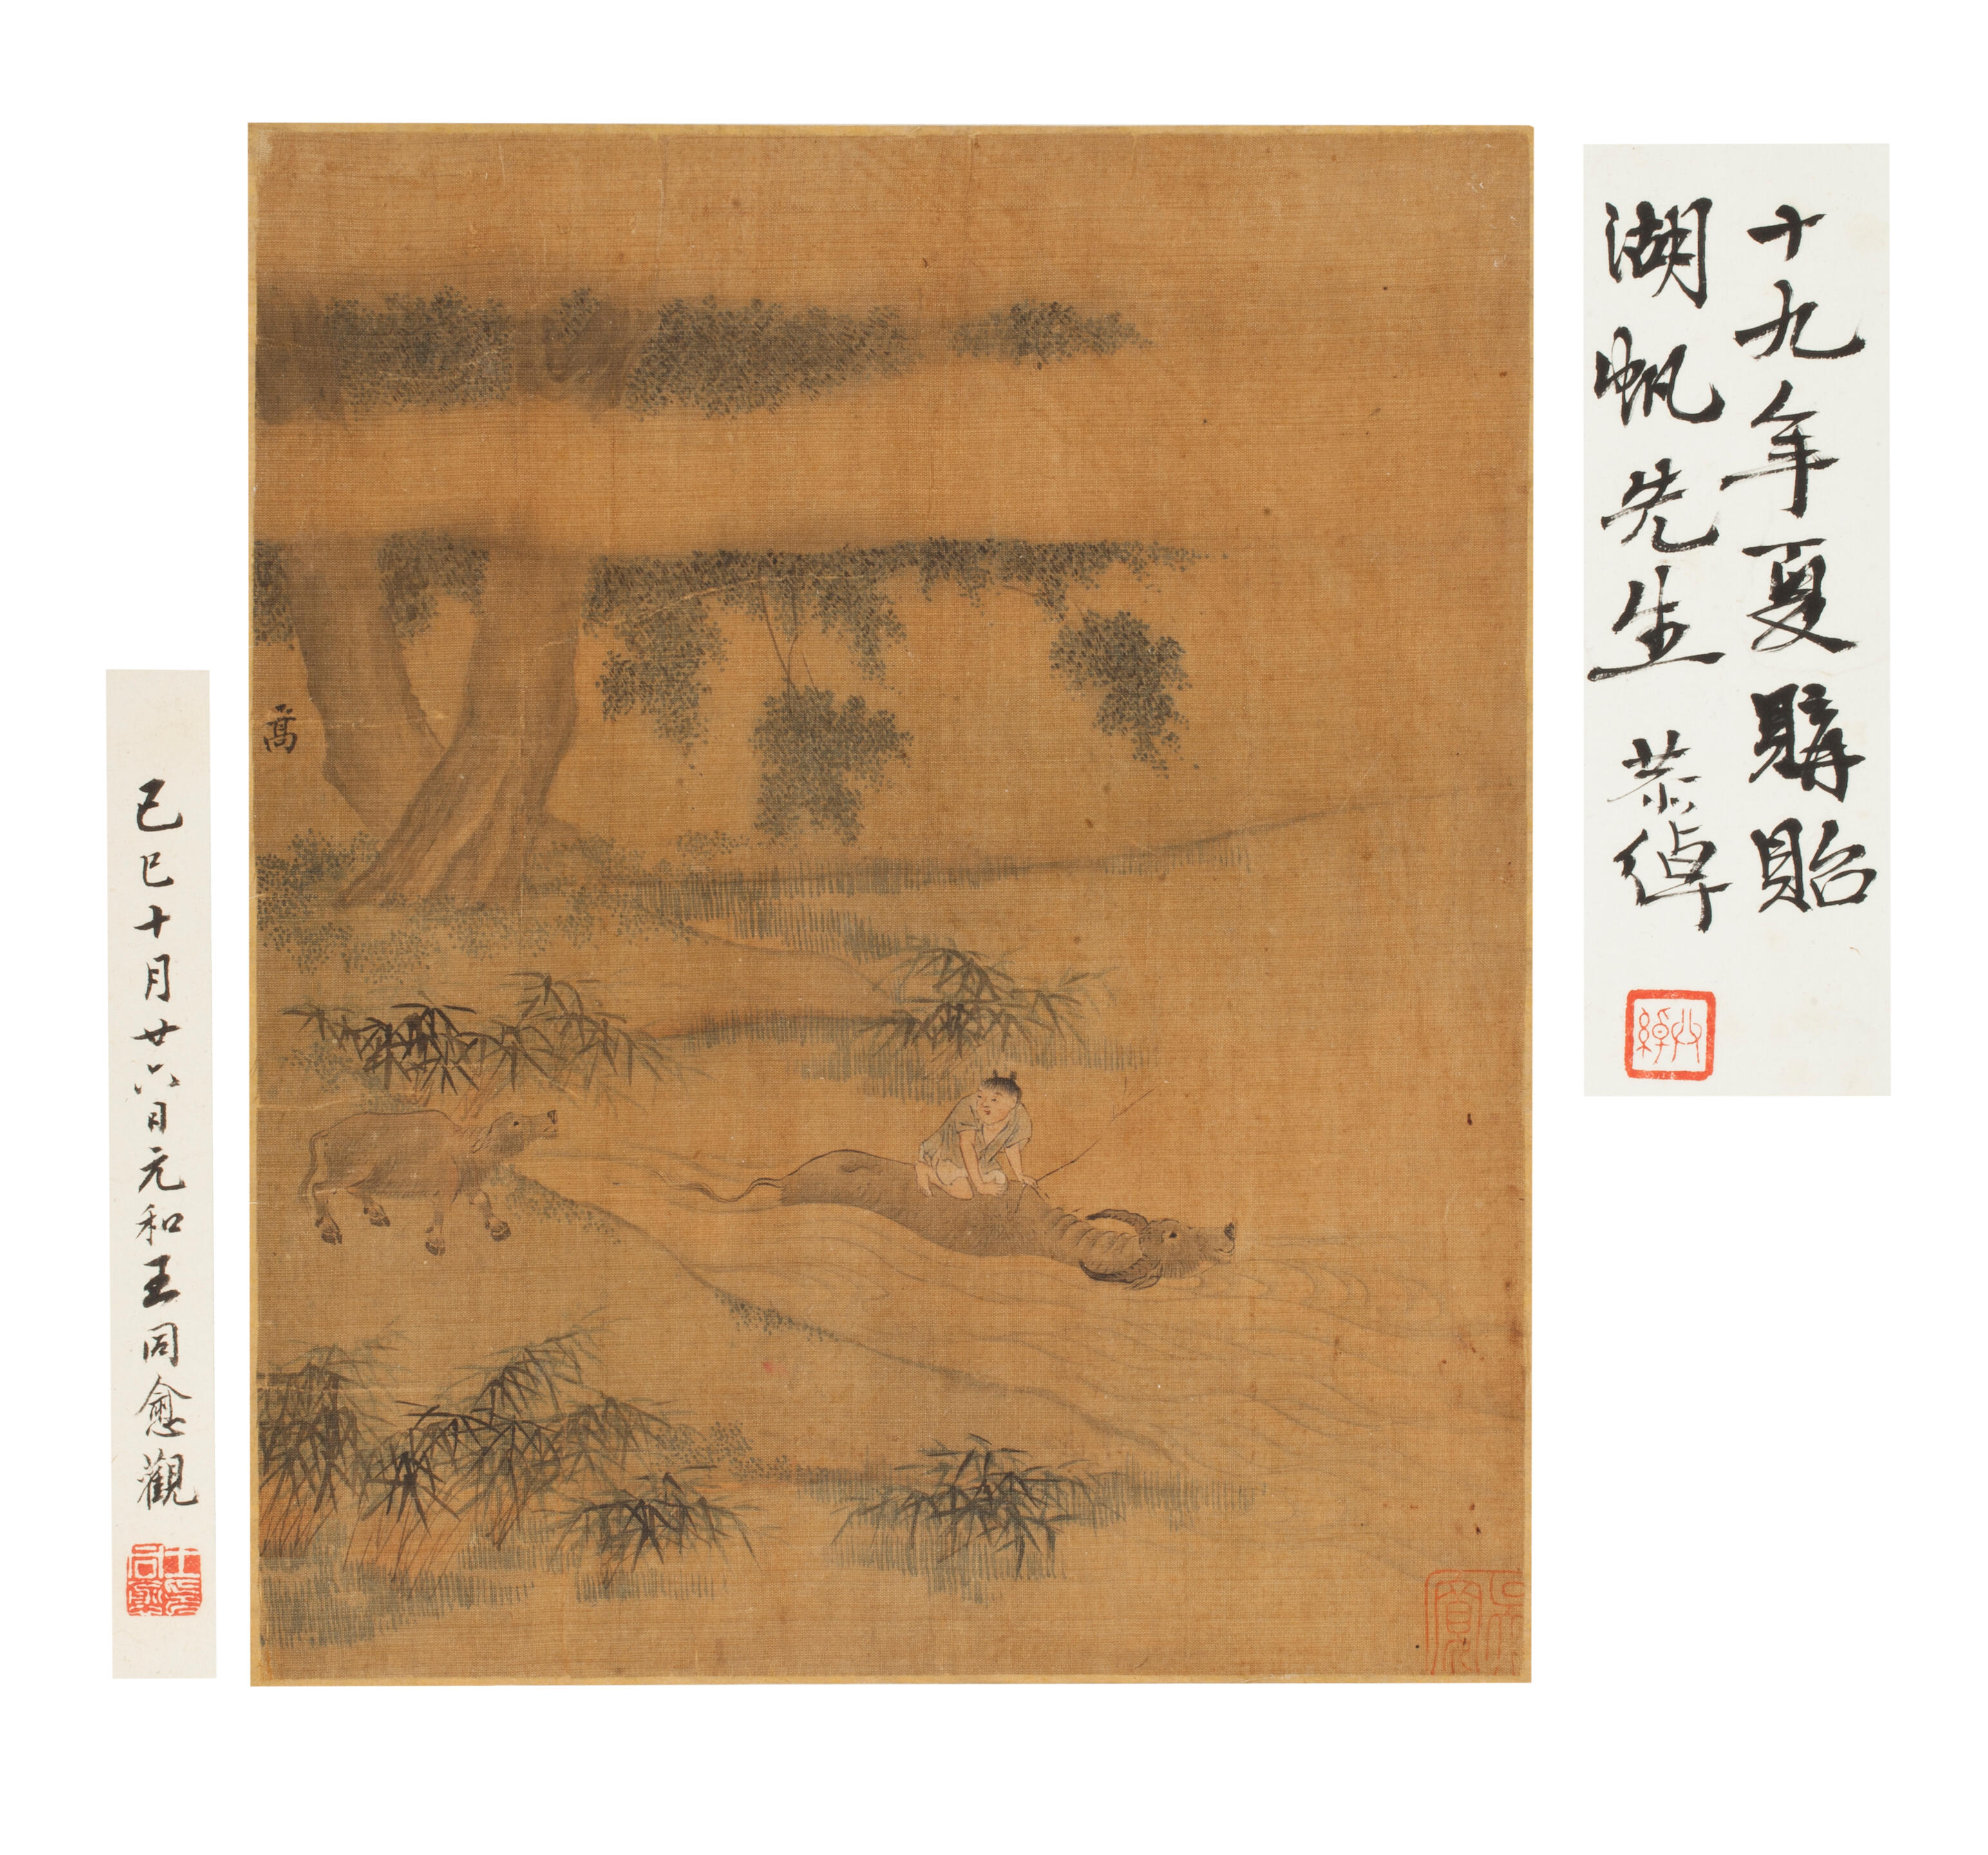 十九年夏購貽
湖帆先生 恭綽
喬
己巳十月廿六日元和王同愈觀
王同愈